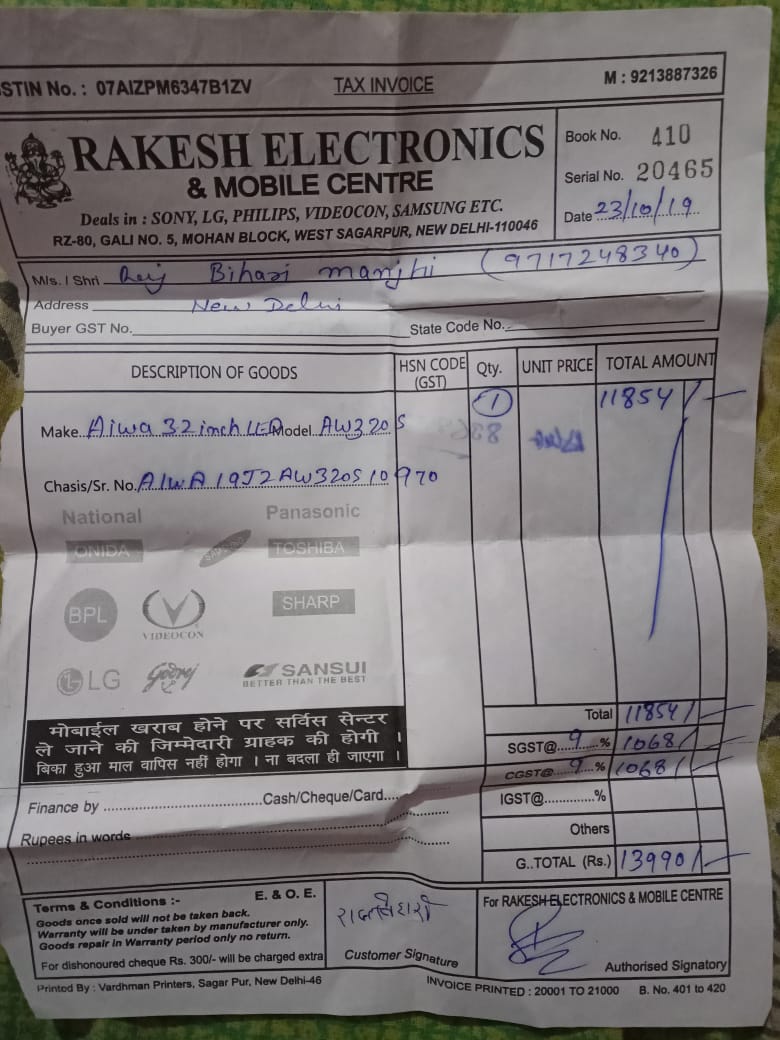 STIN No. : 07AIZPM6347B1ZV TAX INVOICE M : 9213887326
RAKESH ELECTRONICS
& MOBILE CENTRE
Deals in : SONY, LG, PHILIPS, VIDEOCON, SAMSUNG ETC.
RZ-80, GALI NO. 5, MOHAN BLOCK, WEST SAGARPUR, NEW DELHI-110046
Book No. 410
Serial No. 20465
Date 23/10/19
M/s. / Shri Bihari manjhi (9717248340)
Address New Delhi
Buyer GST No. State Code No.
DESCRIPTION OF GOODS HSN CODE (GST) Qty. UNIT PRICE TOTAL AMOUNT
1 11854/-
Make. Aiwa 32 inch LED Model AW320S
Chasis/Sr. No. AIWA19J2AW320S10970
National Panasonic
ONIDA SAMSUNG TOSHIBA
BPL VIDEOCON SHARP
LG Godrej SANSUI
BETTER THAN THE BEST
मोबाईल खराब होने पर सर्विस सेन्टर
ले जाने की जिम्मेदारी ग्राहक की होगी ।
बिका हुआ माल वापिस नहीं होगा । ना बदला ही जाएगा ।
Total 11854/-
SGST@ 9 % 1068/-
CGST@ 9 % 1068/-
IGST@.............%
Others
G..TOTAL (Rs.) 13990/-
Finance by ................................Cash/Cheque/Card....
Rupees in words
Terms & Conditions :- E. & O. E.
Goods once sold will not be taken back.
Warranty will be under taken by manufacturer only.
Goods repair in Warranty period only no return.
For dishonoured cheque Rs. 300/- will be charged extra
Customer Signature
For RAKESH ELECTRONICS & MOBILE CENTRE
Authorised Signatory
Printed By : Vardhman Printers, Sagar Pur, New Delhi-46 INVOICE PRINTED : 20001 TO 21000 B. No. 401 to 420